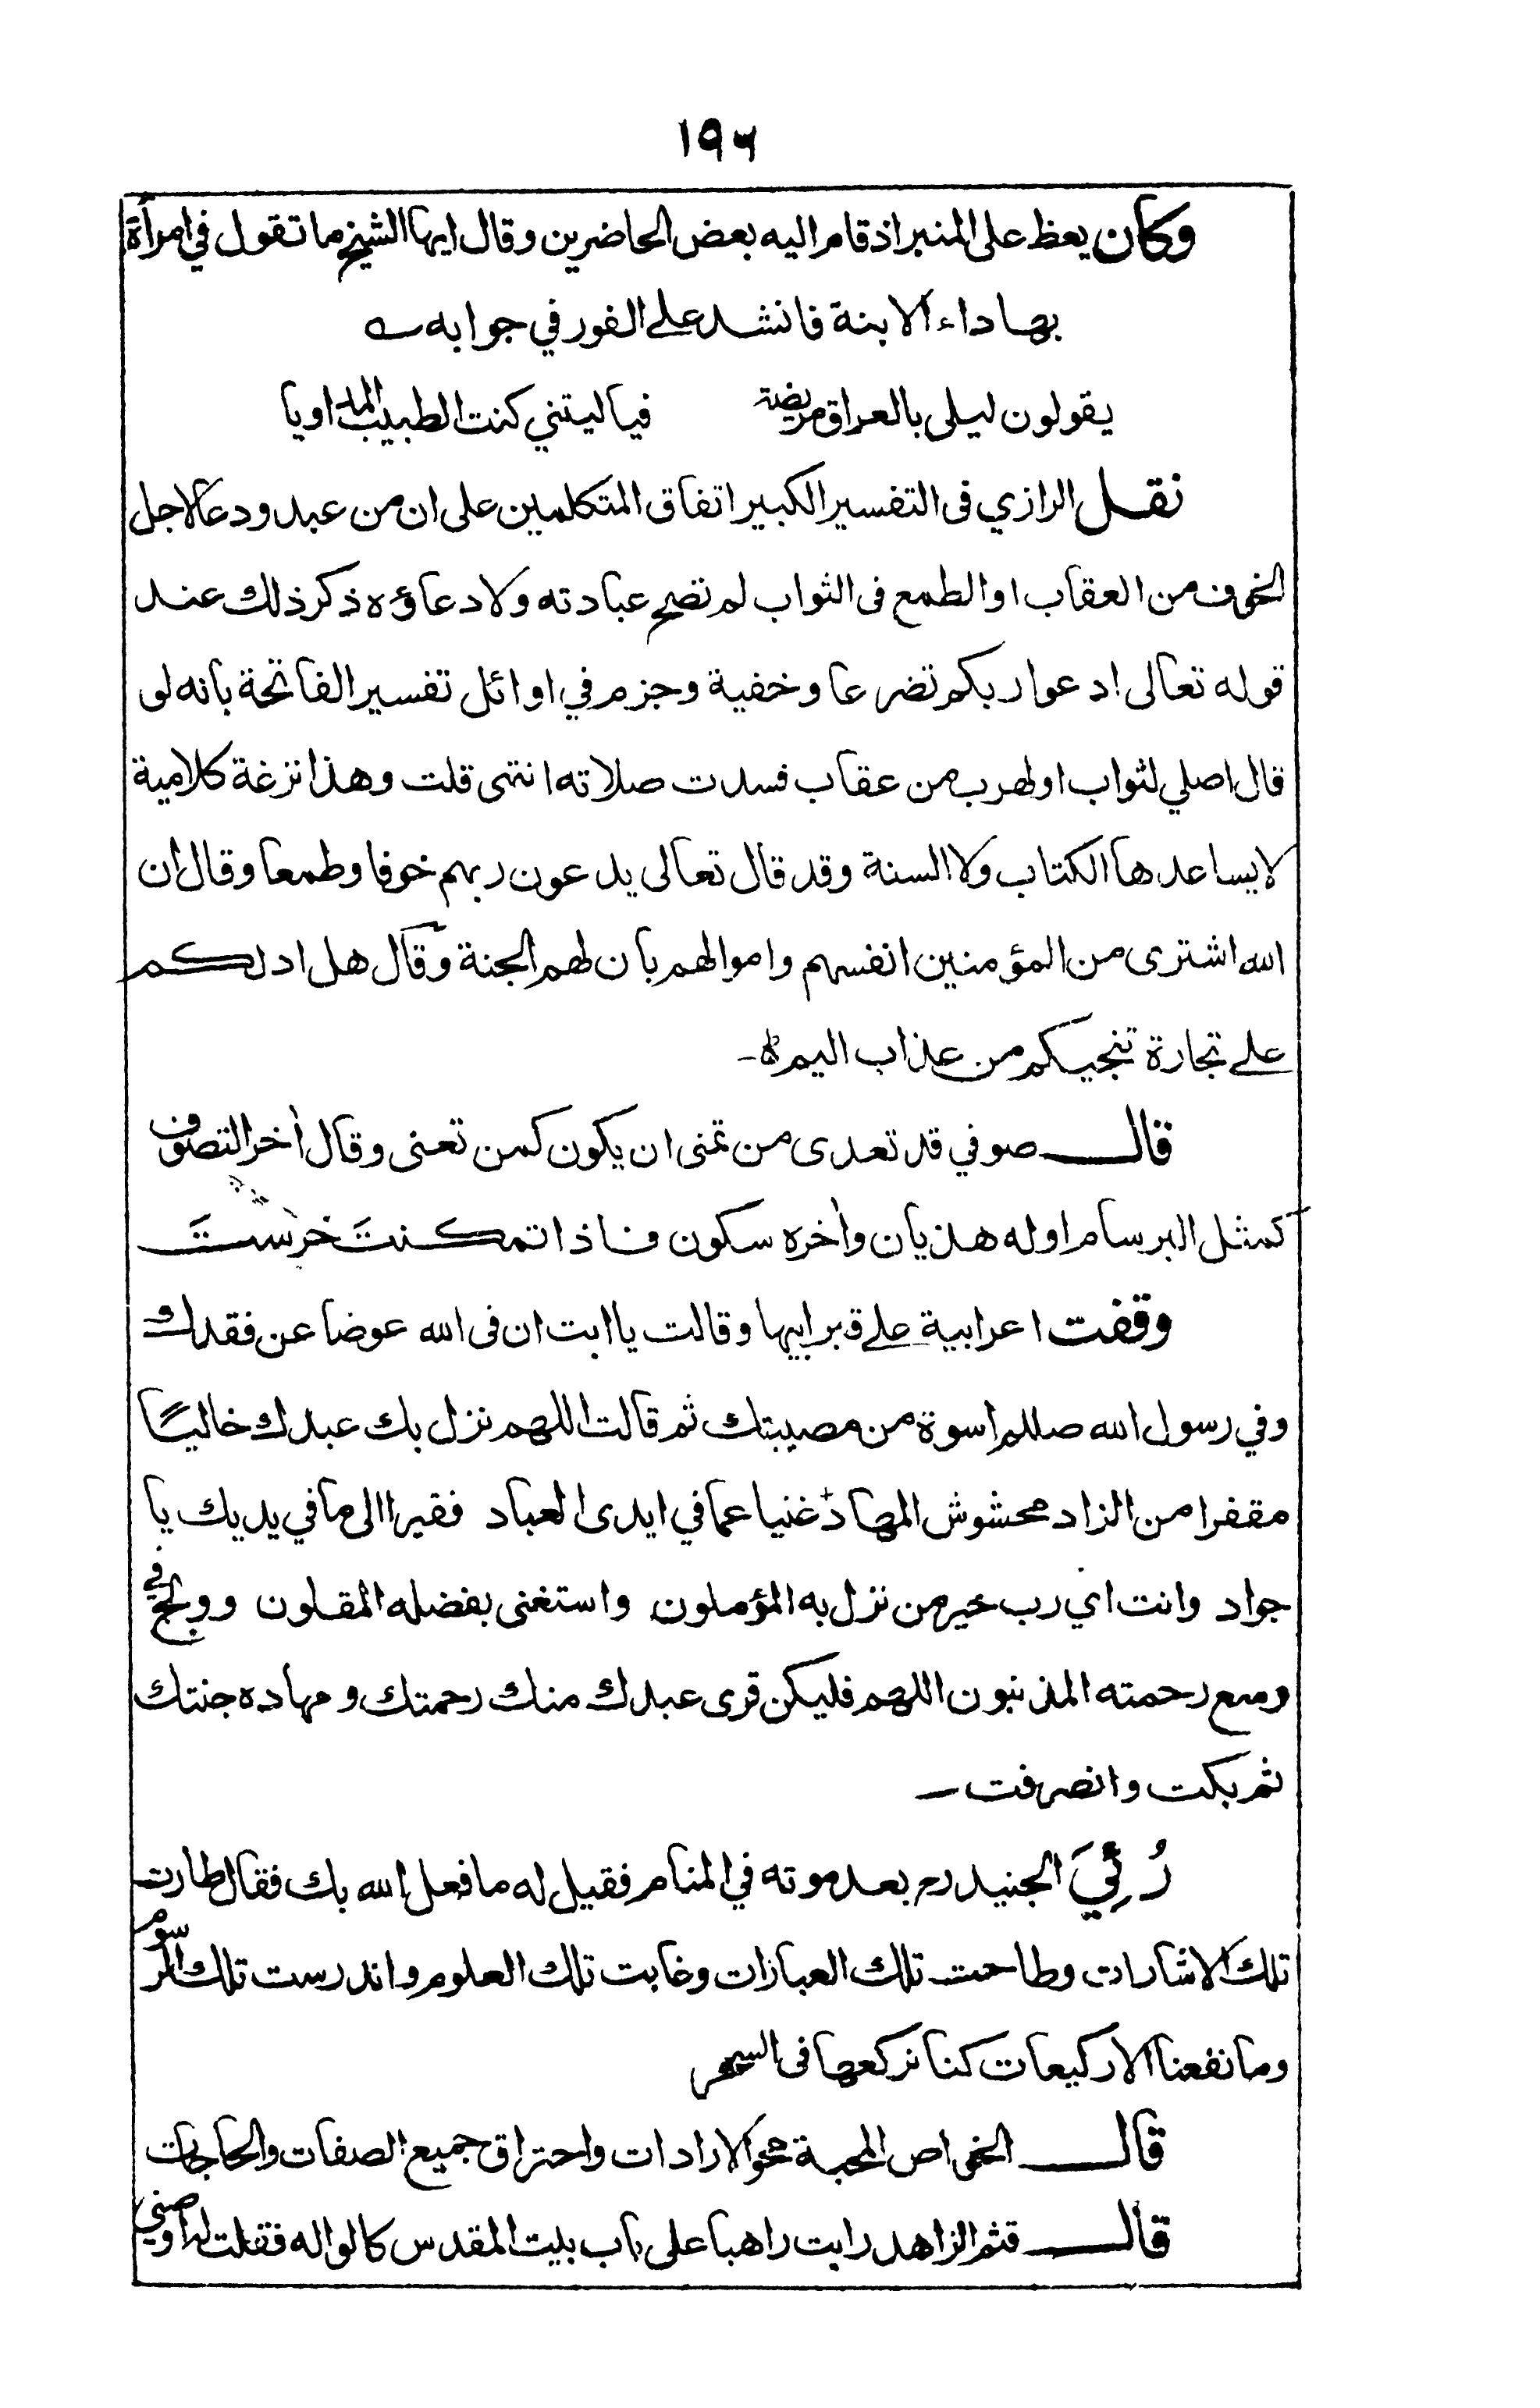 ١٩٦
وكان يعظ على المنبر اذ قام اليه بعض الحاضرين وقال ايها الشيخ ما تقول في امرأة
بها داء الابنة فانشد على الفور في جوابه ے
يقولون ليلى بالعراق مريضة فيا ليتني كنت الطبيب المداويا
نقل الرازي فى التفسير الكبير اتفاق المتكلمين على ان من عبد ودعا لاجل
الخوف من العقاب او الطمع فى الثواب لم تصح عبادته ولا دعاؤه ذكر ذلك عند
قوله تعالى ادعوا ربكم تضرعا وخفية وجزم في اوائل تفسير الفاتحة بانه لو
قال اصلي لثواب او لهرب من عقاب فسدت صلاته انتهى قلت وهذا نزغة كلامية
لا يساعدها الكتاب ولا السنة وقد قال تعالى يدعون ربهم خوفا وطمعا وقال ان
الله اشترى من المؤمنين انفسهم واموالهم بان لهم الجنة وقال هل ادلكم
على تجارة تنجيكم من عذاب اليم ۵ -
قال صوفي قد تعدى من تمنى ان يكون كمن تعنى وقال أخر التصوف
كمثل البرسام اوله هذيان وأخره سكون فاذا تمكنتَ خرستَ
وقفت اعرابية على قبر ابيها وقالت يا ابت ان فى الله عوضا عن فقدك
وفي رسول الله صللم اسوة من مصيبتك ثم قالت اللهم نزل بك عبدك خاليًا
مقفرا من الزاد محشوش المهاد غنيا عما في ايدى العباد فقيرا الى ما في يديك يا
جواد وانت اي رب خير من نزل به المؤملون واستغنى بفضله المقلون وولج في
وسع رحمته المذنبون اللهم فليكن قرى عبدك منك رحمتك ومهاده جنتك
ثم بكت وانصرفت -
رُئِيَ الجنيد رح بعد موته في المنام فقيل له ما فعل الله بك فقال طارت
تلك الاشارات وطاحت تلك العبارات وغابت تلك العلوم واندرست تلك الرسوم
وما نفعنا الا ركيعات كنا نركعها فى السحر
قال الخواص المحبة محو الارادات واحتراق جميع الصفات والحاجات
قال قثم الزاهد رايت راهبا على باب بيت المقدس كالواله فقلت له اوصني